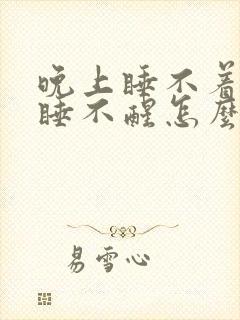 晚上睡不着
睡不醒怎麼
易雪心